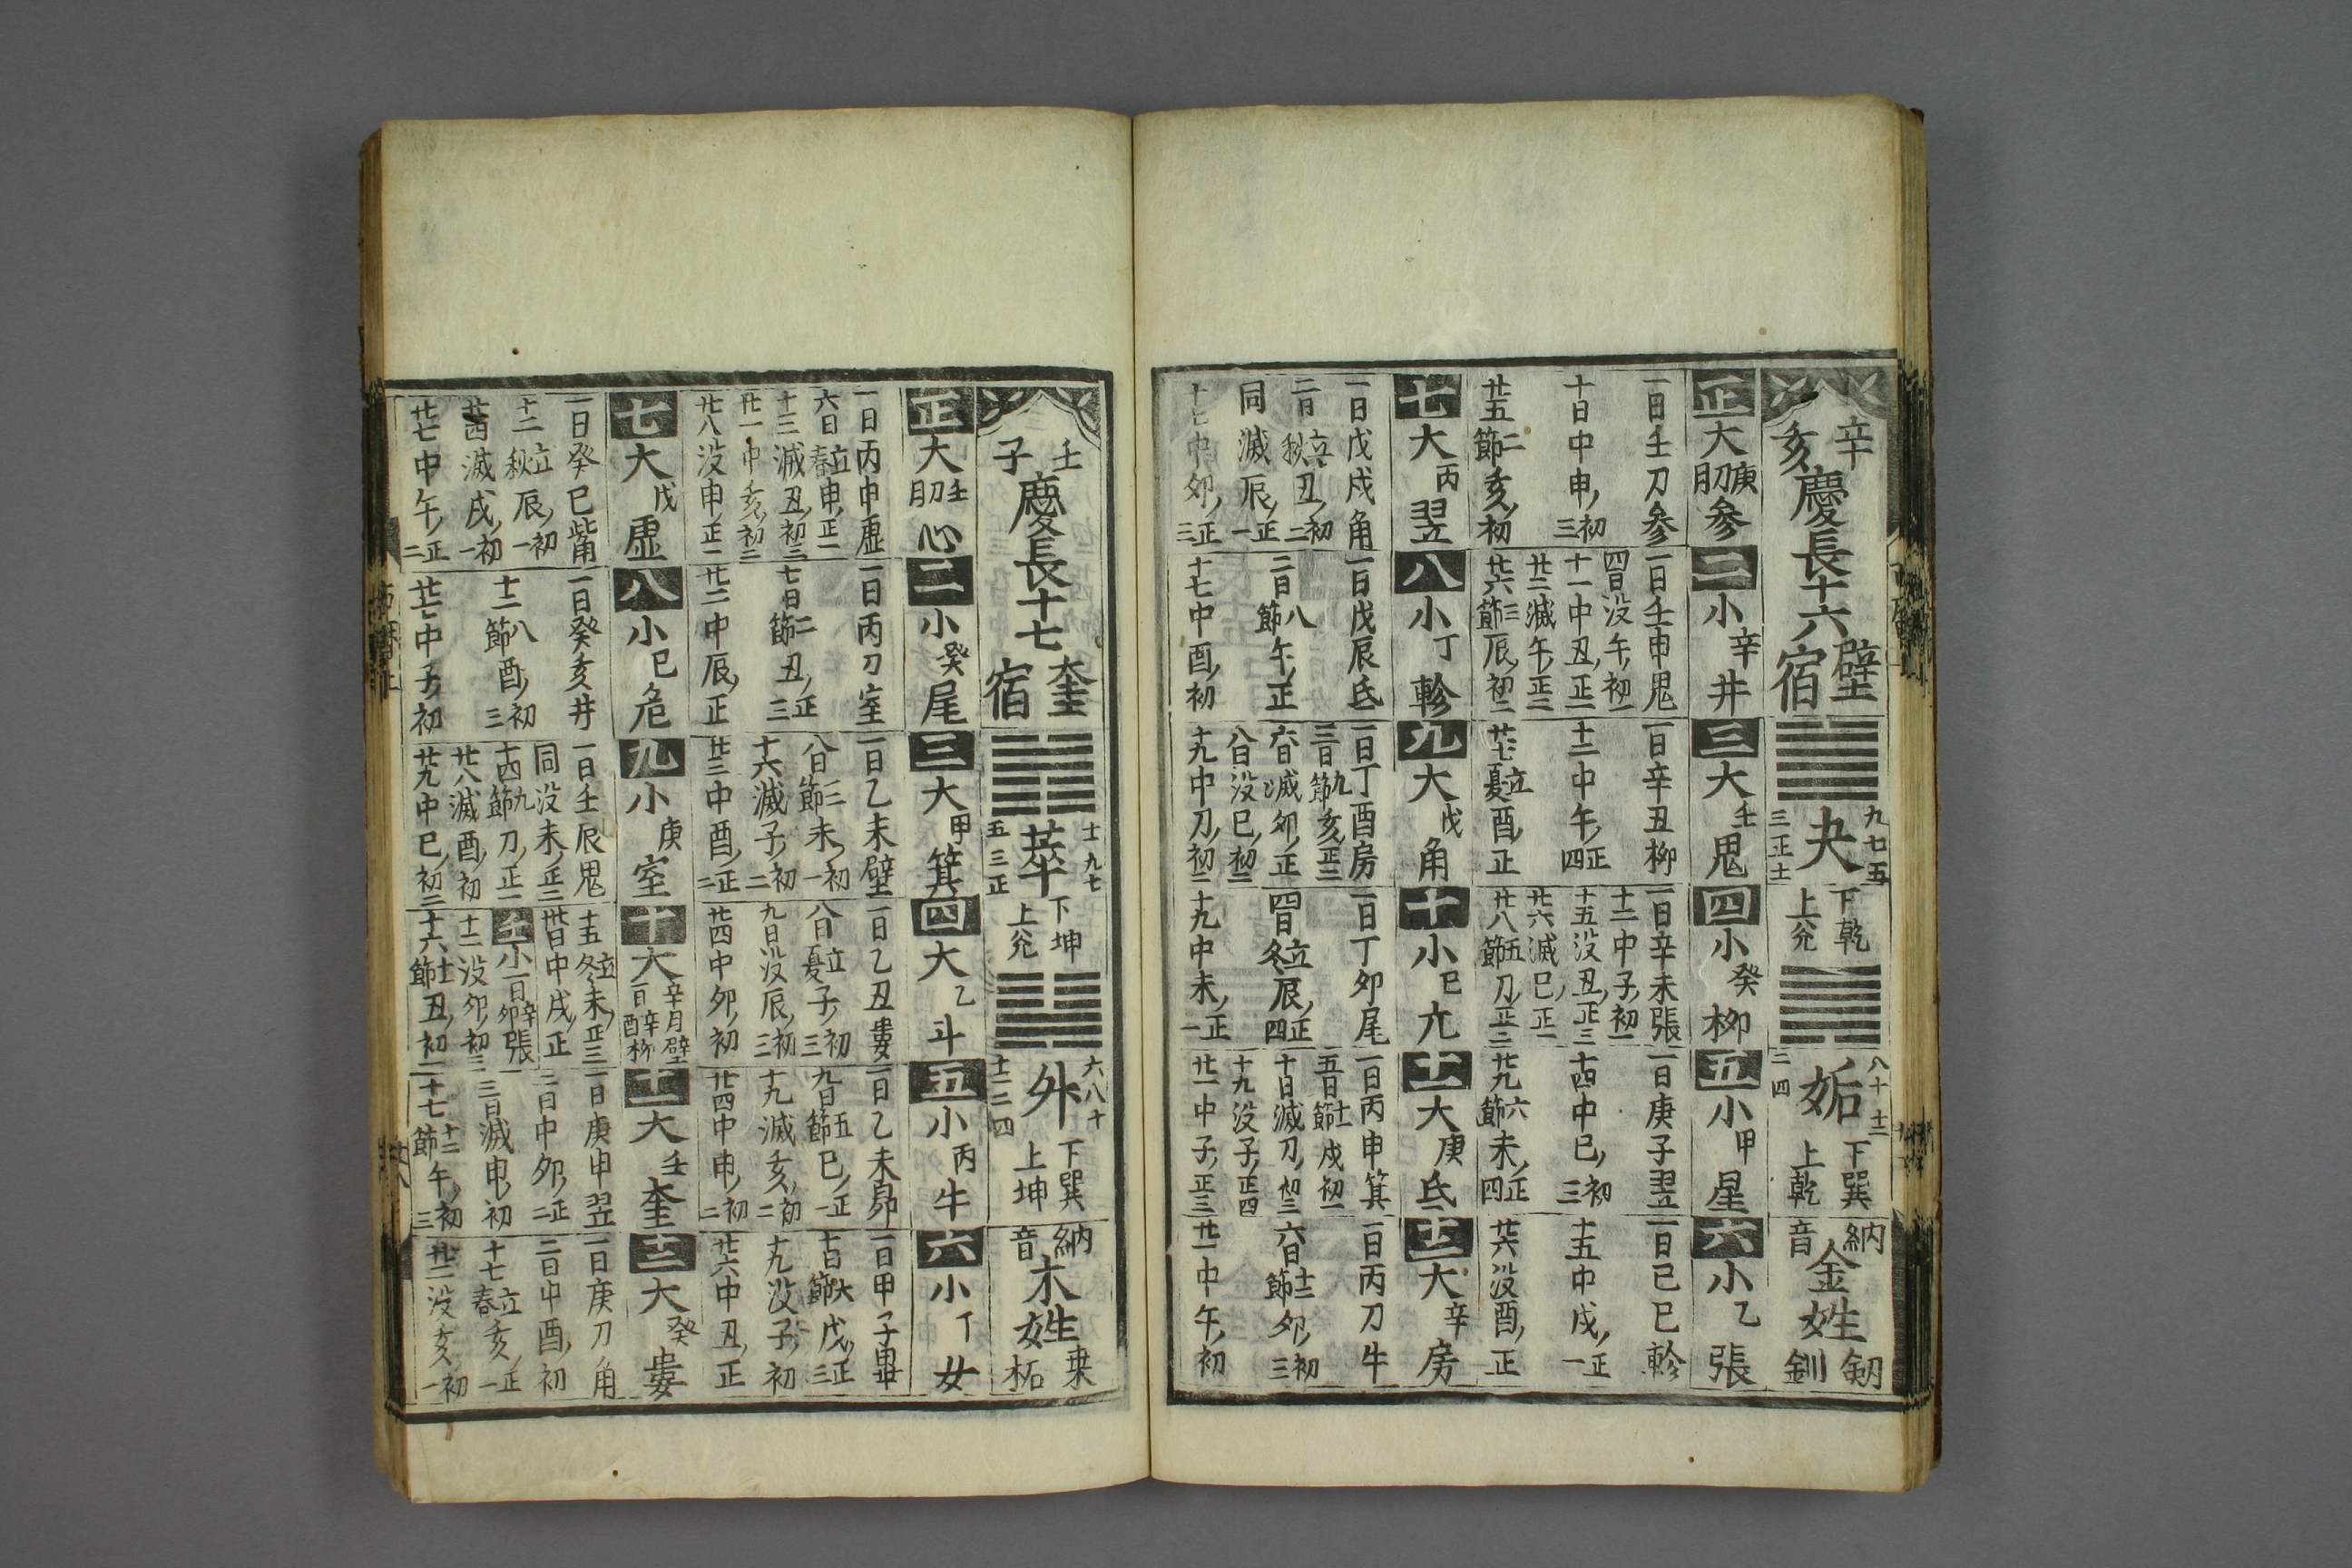 辛亥
慶長十六
壁宿
夬
九七五
三正士
下乾
上兊
姤
八十士二
二四
下巽
上乾
納音
金姓
剱
釧
正大
庚
参
二小
辛
井
三大
壬
鬼
四小
癸
柳
五小
甲
星
六小
乙
張
一日壬刀参
十日中申,初三
廿五二節亥,初
一日壬申鬼
四日没午,初一
十一中丑,正一
廿二滅午,正三
廿六三節辰,初二
一日辛丑柳
十二中午,正四
廿七立夏酉,正
一日辛未張
十二中子,初一
十五没丑,正三
廿六滅巳,正一
廿八五節刀,正二
一日庚子翌
十四中巳,初三
廿九六節未,正四
一日巳巳軫
十五中戌,正一
廿六没酉,正
七大
丙
翌
八小
丁
軫
九大
戊
角
十小
巳
亢
十一大
庚
氐
十二大
辛
房
一日戊戌角
二日立秋丑,初二
同滅辰,正一
十七中夘,正三
一日戊辰氐
二日八節午,正
十七中酉,初
一日丁酉房
三日九節亥,正三
六日滅夘,正
八日没巳,初二
十九中刀,初二
一日丁夘尾
四日立冬辰,正四
十九中未,正一
一日丙申箕
五日十一節戌,初一
十日滅刀,初三
十九没子,正四
廿一中子,正三
一日丙刀牛
六日十二節夘,初三
廿一中午,初
壬子
慶長十七
奎宿
萃
士九七
五三正
下坤
上兊
升
六八十
十二二四
下巽
上坤
納音
木姓
桒
柘
正大
壬
心
二小
癸
尾
三大
甲
箕
四大
乙
斗
五小
丙
牛
六小
丁
女
一日丙申虚
六日立春申,正一
十三滅丑,初三
廿一中亥,初三
廿八没申,正一
一日丙刀室
七日二節丑,正三
廿二中辰,正
一日乙未壁
八日三節未,初一
十六滅子,初二
廿三中酉,正二
一日乙丑婁
八日立夏子,初三
九日没辰,初三
廿四中夘,初
一日乙未昴
九日五節巳,正一
十九滅亥,初二
廿四中申,初二
一日甲子畢
十日六節戌,正三
十九没子,初
廿六中丑,正
七大
戊
虚
八小
巳
危
九小
庚
室
十大
辛月壁
一日辛酉柳
十一大
壬
奎
十二大
癸
婁
一日癸巳觜
十二立秋辰,初一
廿四滅戌,初一
廿七中午,正二
一日癸亥井
十二八節酉,初三
廿七中子,初
一日壬辰鬼
同没未,正二
十四九節刀,正一
廿八滅酉,初
廿九中巳,初二
十五立冬未,正三
廿日中戌,正
壬小一日辛夘張
十二没夘,初三
十六士節丑,初一
一日庚申翌
二日中夘,正二
三日滅申,初
十七十二節午,初三
一日庚刀角
二日中酉,初
十七立春亥,正一
廿二没亥,初一